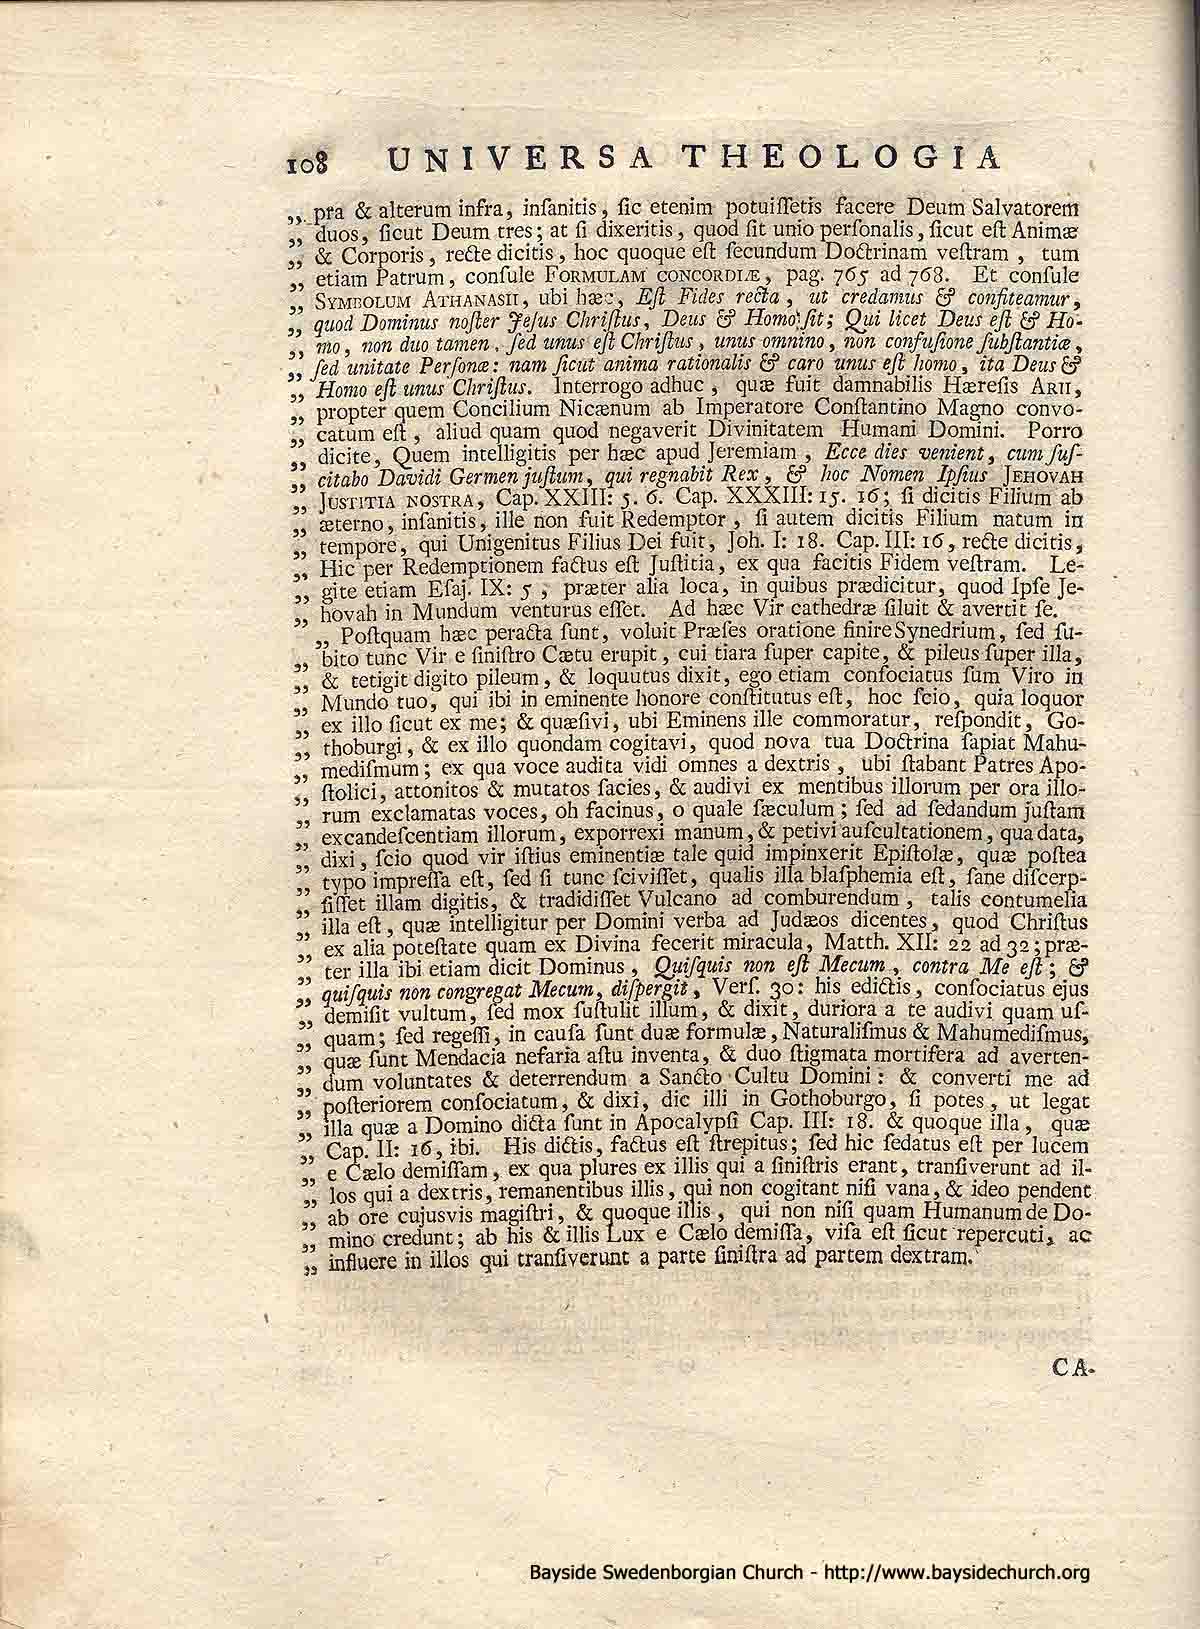 108 UNIVERSA THEOLOGIA
„ pra & alterum infra, inſanitis, ſic etenim potuiſſetis facere Deum Salvatorem
„ duos, ſicut Deum tres; at ſi dixeritis, quod ſit unio perſonalis, ſicut eſt Animæ
„ & Corporis, recte dicitis, hoc quoque eſt ſecundum Doctrinam veſtram, tum
„ etiam Patrum, conſule FORMULAM CONCORDIÆ, pag. 765 ad 768. Et conſule
„ SYMBOLUM ATHANASII, ubi hæc, Eſt Fides recta, ut credamus & confiteamur,
„ quod Dominus noſter Jeſus Chriſtus, Deus & Homo ſit; Qui licet Deus eſt & Ho-
„ mo, non duo tamen, ſed unus eſt Chriſtus, unus omnino, non confuſione ſubſtantiæ,
„ ſed unitate Perſonæ: nam ſicut anima rationalis & caro unus eſt homo, ita Deus &
„ Homo eſt unus Chriſtus. Interrogo adhuc, quæ fuit damnabilis Hæreſis ARII,
„ propter quem Concilium Nicænum ab Imperatore Conſtantino Magno convo-
„ catum eſt, aliud quam quod negaverit Divinitatem Humani Domini. Porro
„ dicite, Quem intelligitis per hæc apud Jeremiam, Ecce dies venient, cum ſuſ-
„ citabo Davidi Germen juſtum, qui regnabit Rex, & hoc Nomen Ipſius JEHOVAH
„ JUSTITIA NOSTRA, Cap. XXIII: 5. 6. Cap. XXXIII: 15. 16; ſi dicitis Filium ab
„ æterno, inſanitis, ille non fuit Redemptor, ſi autem dicitis Filium natum in
„ tempore, qui Unigenitus Filius Dei fuit, Joh. I: 18. Cap. III: 16, recte dicitis,
„ Hic per Redemptionem factus eſt Juſtitia, ex qua facitis Fidem veſtram. Le-
„ gite etiam Eſaj. IX: 5, præter alia loca, in quibus prædicitur, quod Ipſe Je-
„ hovah in Mundum venturus eſſet. Ad hæc Vir cathedræ ſiluit & avertit ſe.
„ Poſtquam hæc peracta ſunt, voluit Præſes oratione finire Synedrium, ſed ſu-
„ bito tunc Vir e ſiniſtro Cætu erupit, cui tiara ſuper capite, & pileus ſuper illa,
„ & tetigit digito pileum, & loquutus dixit, ego etiam conſociatus ſum Viro in
„ Mundo tuo, qui ibi in eminente honore conſtitutus eſt, hoc ſcio, quia loquor
„ ex illo ſicut ex me; & quæſivi, ubi Eminens ille commoratur, reſpondit, Go-
„ thoburgi, & ex illo quondam cogitavi, quod nova tua Doctrina ſapiat Mahu-
„ mediſmum; ex qua voce audita vidi omnes a dextris, ubi ſtabant Patres Apo-
„ ſtolici, attonitos & mutatos facies, & audivi ex mentibus illorum per ora illo-
„ rum exclamatas voces, oh facinus, o quale ſæculum; ſed ad ſedandum juſtam
„ excandeſcentiam illorum, exporrexi manum, & petivi auſcultationem, qua data,
„ dixi, ſcio quod vir iſtius eminentiæ tale quid impinxerit Epiſtolæ, quæ poſtea
„ typo impreſſa eſt, ſed ſi tunc ſciviſſet, qualis illa blaſphemia eſt, ſane diſcerp-
„ ſiſſet illam digitis, & tradidiſſet Vulcano ad comburendum, talis contumelia
„ illa eſt, quæ intelligitur per Domini verba ad Judæos dicentes, quod Chriſtus
„ ex alia poteſtate quam ex Divina fecerit miracula, Matth. XII: 22 ad 32; præ-
„ ter illa ibi etiam dicit Dominus, Quiſquis non eſt Mecum, contra Me eſt; &
„ quiſquis non congregat Mecum, diſpergit, Verſ. 30: his edictis, conſociatus ejus
„ demiſit vultum, ſed mox ſuſtulit illum, & dixit, duriora a te audivi quam uſ-
„ quam; ſed regeſſi, in cauſa ſunt duæ formulæ, Naturaliſmus & Mahumediſmus,
„ quæ ſunt Mendacia nefaria aſtu inventa, & duo ſtigmata mortifera ad averten-
„ dum voluntates & deterrendum a Sancto Cultu Domini: & converti me ad
„ poſteriorem conſociatum, & dixi, dic illi in Gothoburgo, ſi potes, ut legat
„ illa quæ a Domino dicta ſunt in Apocalypſi Cap. III: 18. & quoque illa, quæ
„ Cap. II: 16, ibi. His dictis, factus eſt ſtrepitus; ſed hic ſedatus eſt per lucem
„ e Cælo demiſſam, ex qua plures ex illis qui a ſiniſtris erant, tranſiverunt ad il-
„ los qui a dextris, remanentibus illis, qui non cogitant niſi vana, & ideo pendent
„ ab ore cujusvis magiſtri, & quoque illis, qui non niſi quam Humanum de Do-
„ mino credunt; ab his & illis Lux e Cælo demiſſa, viſa eſt ſicut repercuti, ac
„ influere in illos qui tranſiverunt a parte ſiniſtra ad partem dextram.
CA-
Bayside Swedenborgian Church - http://www.baysidechurch.org